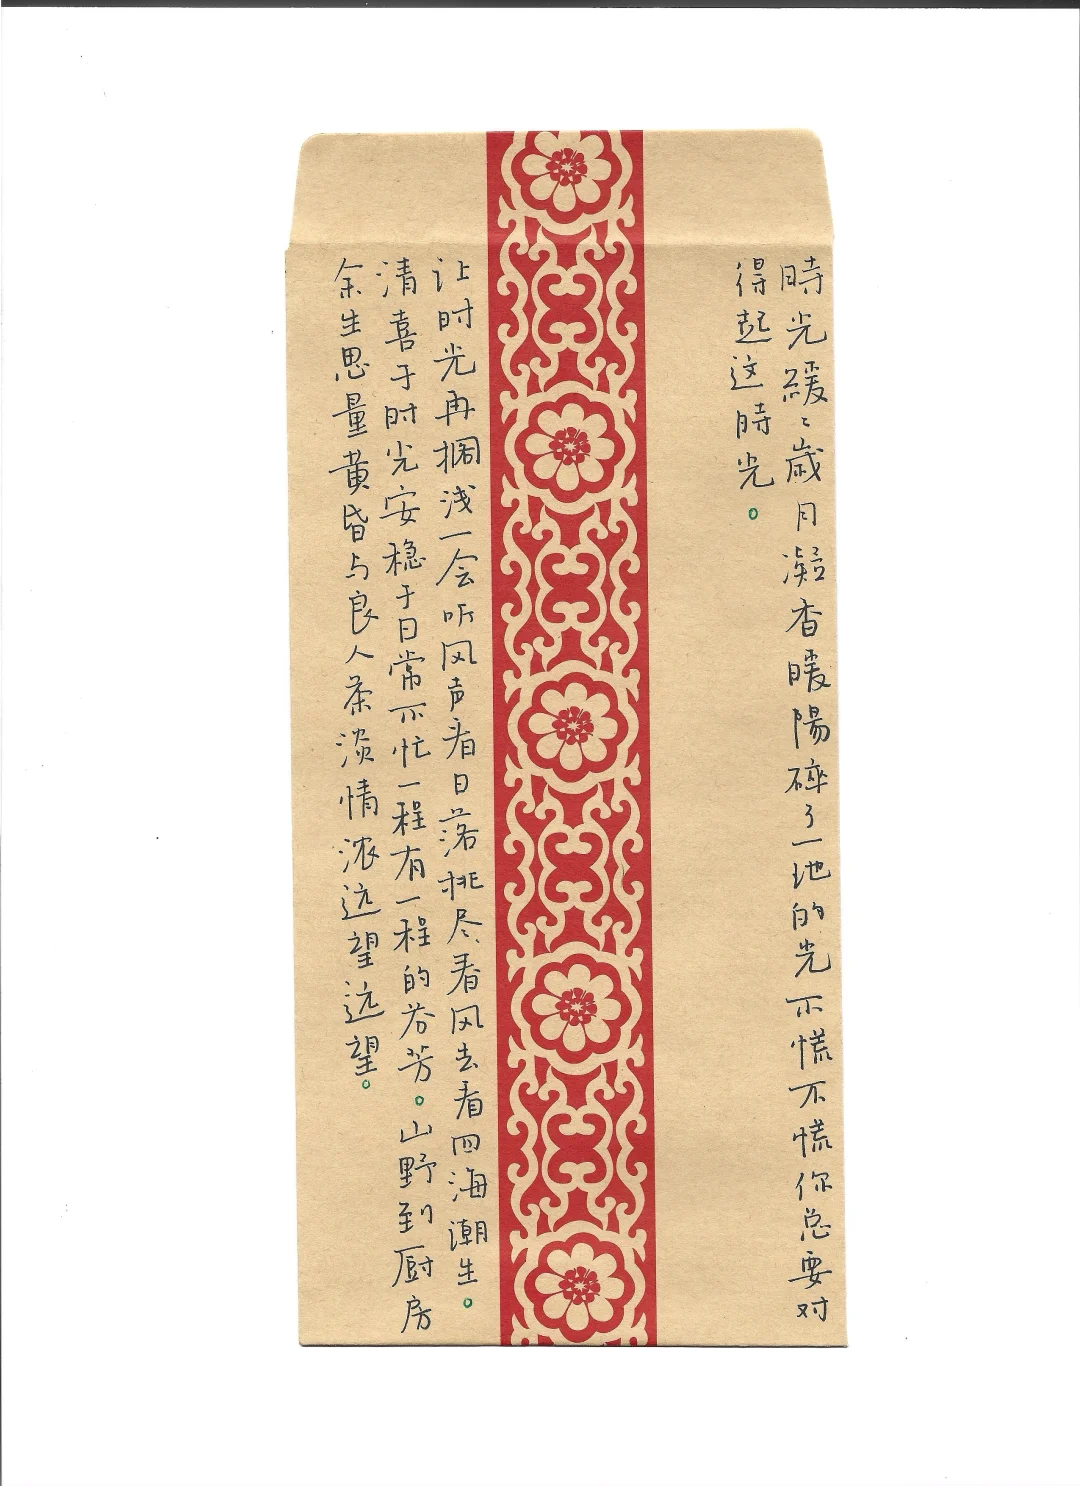 時光緩〻歲月凝香暖陽碎了一地的光不慌不慌你总要对
得起这時光。
让时光再搁浅一会听风声看日落桃尽春风去看四海潮生。
清喜于时光安稳于日常不忙一程有一程的芬芳。山野到厨房
余生思量黄昏与良人茶淡情浓远望远望。